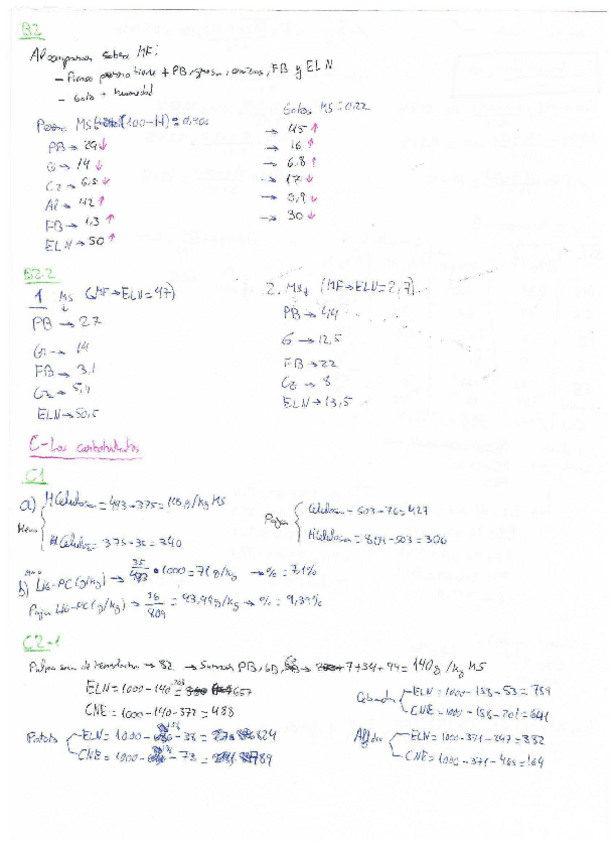 B2
Al comparar sobre MF:
- Pienso perro tiene + PB, grasa, cenizas, FB y ELN
- Gato + humedad
Perro MS (100-H) = 0,906
PB → 29 ↓
G → 14 ↓
Cz → 6,5 ↓
Al → 42 ↑
FB → 1,3 ↑
ELN → 50 ↑
Gatos MS = 0,22
→ 45 ↑
→ 16 ↑
→ 6,8 ↑
→ 17 ↓
→ 0,9 ↓
→ 30 ↓
B2.2
1 MS (MF → ELN = 47)
PB → 27
G → 14
FB → 3,1
Cz → 5,4
ELN → 50,5
2. MS (MF → ELN = 2,7)
PB → 44
G → 12,5
FB → 22
Cz → 8
ELN → 13,5
C - Los carbohidratos
C1
a) Heno
HCelulosa = 493-375 = 118 g/kg MS
Celulosa = 375-35 = 340
Paja
Celulosa = 503-76 = 427
HCelulosa = 809-503 = 306
b) Heno LIG-PC (g/kg) → 35/493 · 1000 = 71 g/kg → % = 7,1%
Paja LIG-PC (g/kg) → 76/809 = 93,94 g/kg → % = 9,39%
C2-1
Pulpa seca de remolacha → 82 → Sumar PB, GB, → 7+34+99 = 140 g/kg MS
ELN = 1000-140-203 = 657
CNE = 1000-140-372 = 488
Patata
ELN = 1000-138-38 = 824
CNE = 1000-138-73 = 789
Cebada
ELN = 1000-158-53 = 789
CNE = 1000-158-201 = 641
Alfalfa
ELN = 1000-371-247 = 382
CNE = 1000-371-465 = 164